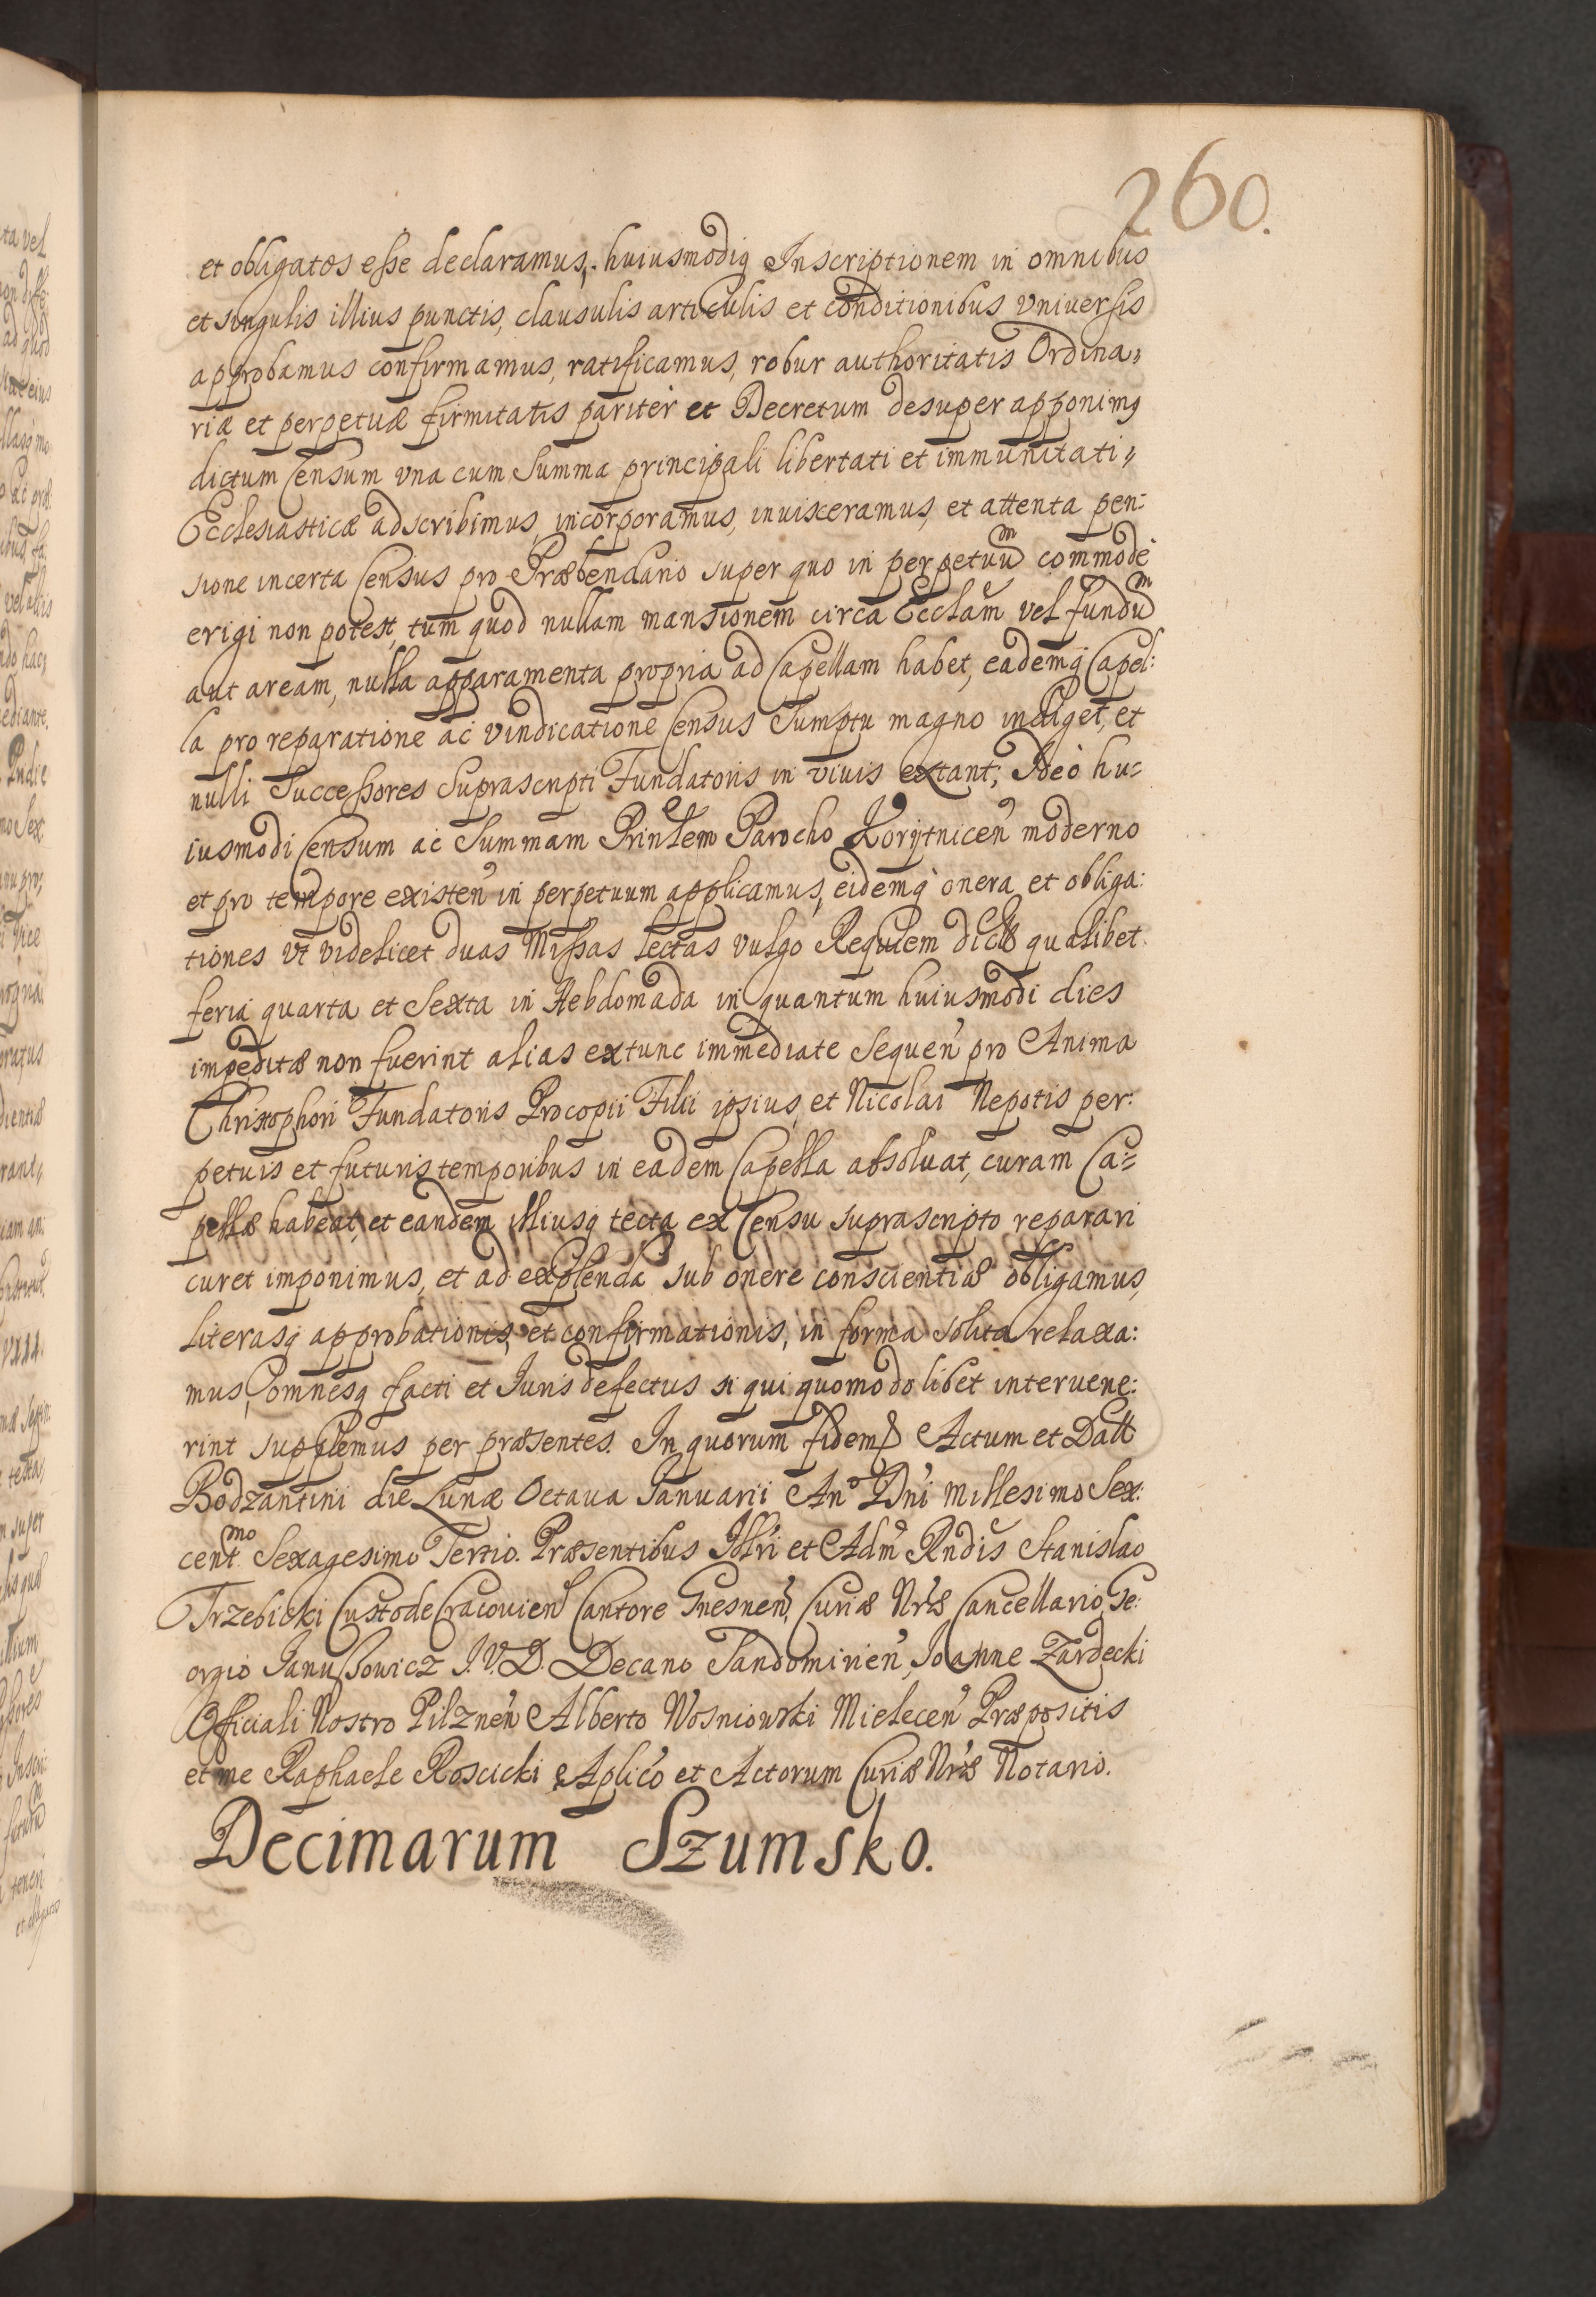 260.
et obligatos esse declaramus, huiusmodiq Inscriptionem in omnibus
et singulis illius punctis, clausulis articulis et conditionibus vniversis
approbamus confirmamus, ratificamus, robur authoritatis Ordina„
riæ et perpetuæ firmitatis pariter et Decretum desuper apponimq
dictum Censum vna cum Summa principali libertati et immunitati„
Ecclesiasticæ adscribimus, incorporamus, inuisceramus, et attenta pen:
sione incerta Census pro Præbendario super quo in perpetuũm commodè
erigi non potest, tum quod nullam mansionem circa Ecclãm vel fundũm
aut aream, nulla apparamenta propria ad Capellam habet, eademq Capel:
la pro reparatione ac vindicatione Census Sumptu magno indiget, et
nulli Successores Suprascripti Fundatoris in viuis extant; Ideò hu:
iusmodi Censum ac Summam Prinlem Parocho Korytnicen̉ moderno
et pro tempore existen̉ in perpetuum applicamus, eidemq onera et obliga:
tiones vt videlicet duas Missas lectas vulgo Requiem dictæ qualibet
feria quarta et Sexta in Hebdomada in quantum huiusmodi dies
impeditæ non fuerint alias extunc immediate Sequen̉ pro Anima
Christophori Fundatoris Procopii Filii ipsius, et Nicolai Nepotis per:
petuis et futuris temporibus in eadem Capella absoluat, curam Ca:
pellæ habeat, et eandem illiusq tecta ex Censu suprascripto reparari
curet imponimus, et ad explenda sub onere conscientiæ obligamus,
literasq approbationis, et confirmationis, in forma solita relaxa:
mus, omnesq facti et Juris defectus si qui quomodolibet intervene:
rint supplemus per præsentes. In quorum fidem Actum et Datt
Bodzantini die Lunæ Octaua Januarii An̊ Dn̉i Millesimo Sex:
cent.mo Sexagesimo Tertio. Præsentibus Illri et Adm̉ Rndis Stanislao
Trzebicki Custode Cracovien̉ Cantore Gnesnen̉, Curiæ Nr̉æ Cancellario, Ge:
orgio Janussowicz J.V.D. Decano Sandomirien̉, Joanne Zardecki
Officiali Nostro Pilznen̉ Alberto Wosniowski Mielecen̉ Præpositis
et me Raphaele Roscicki Aplic̉o et Actorum Curiæ Nr̉æ Notario.
Decimarum Szumsko.